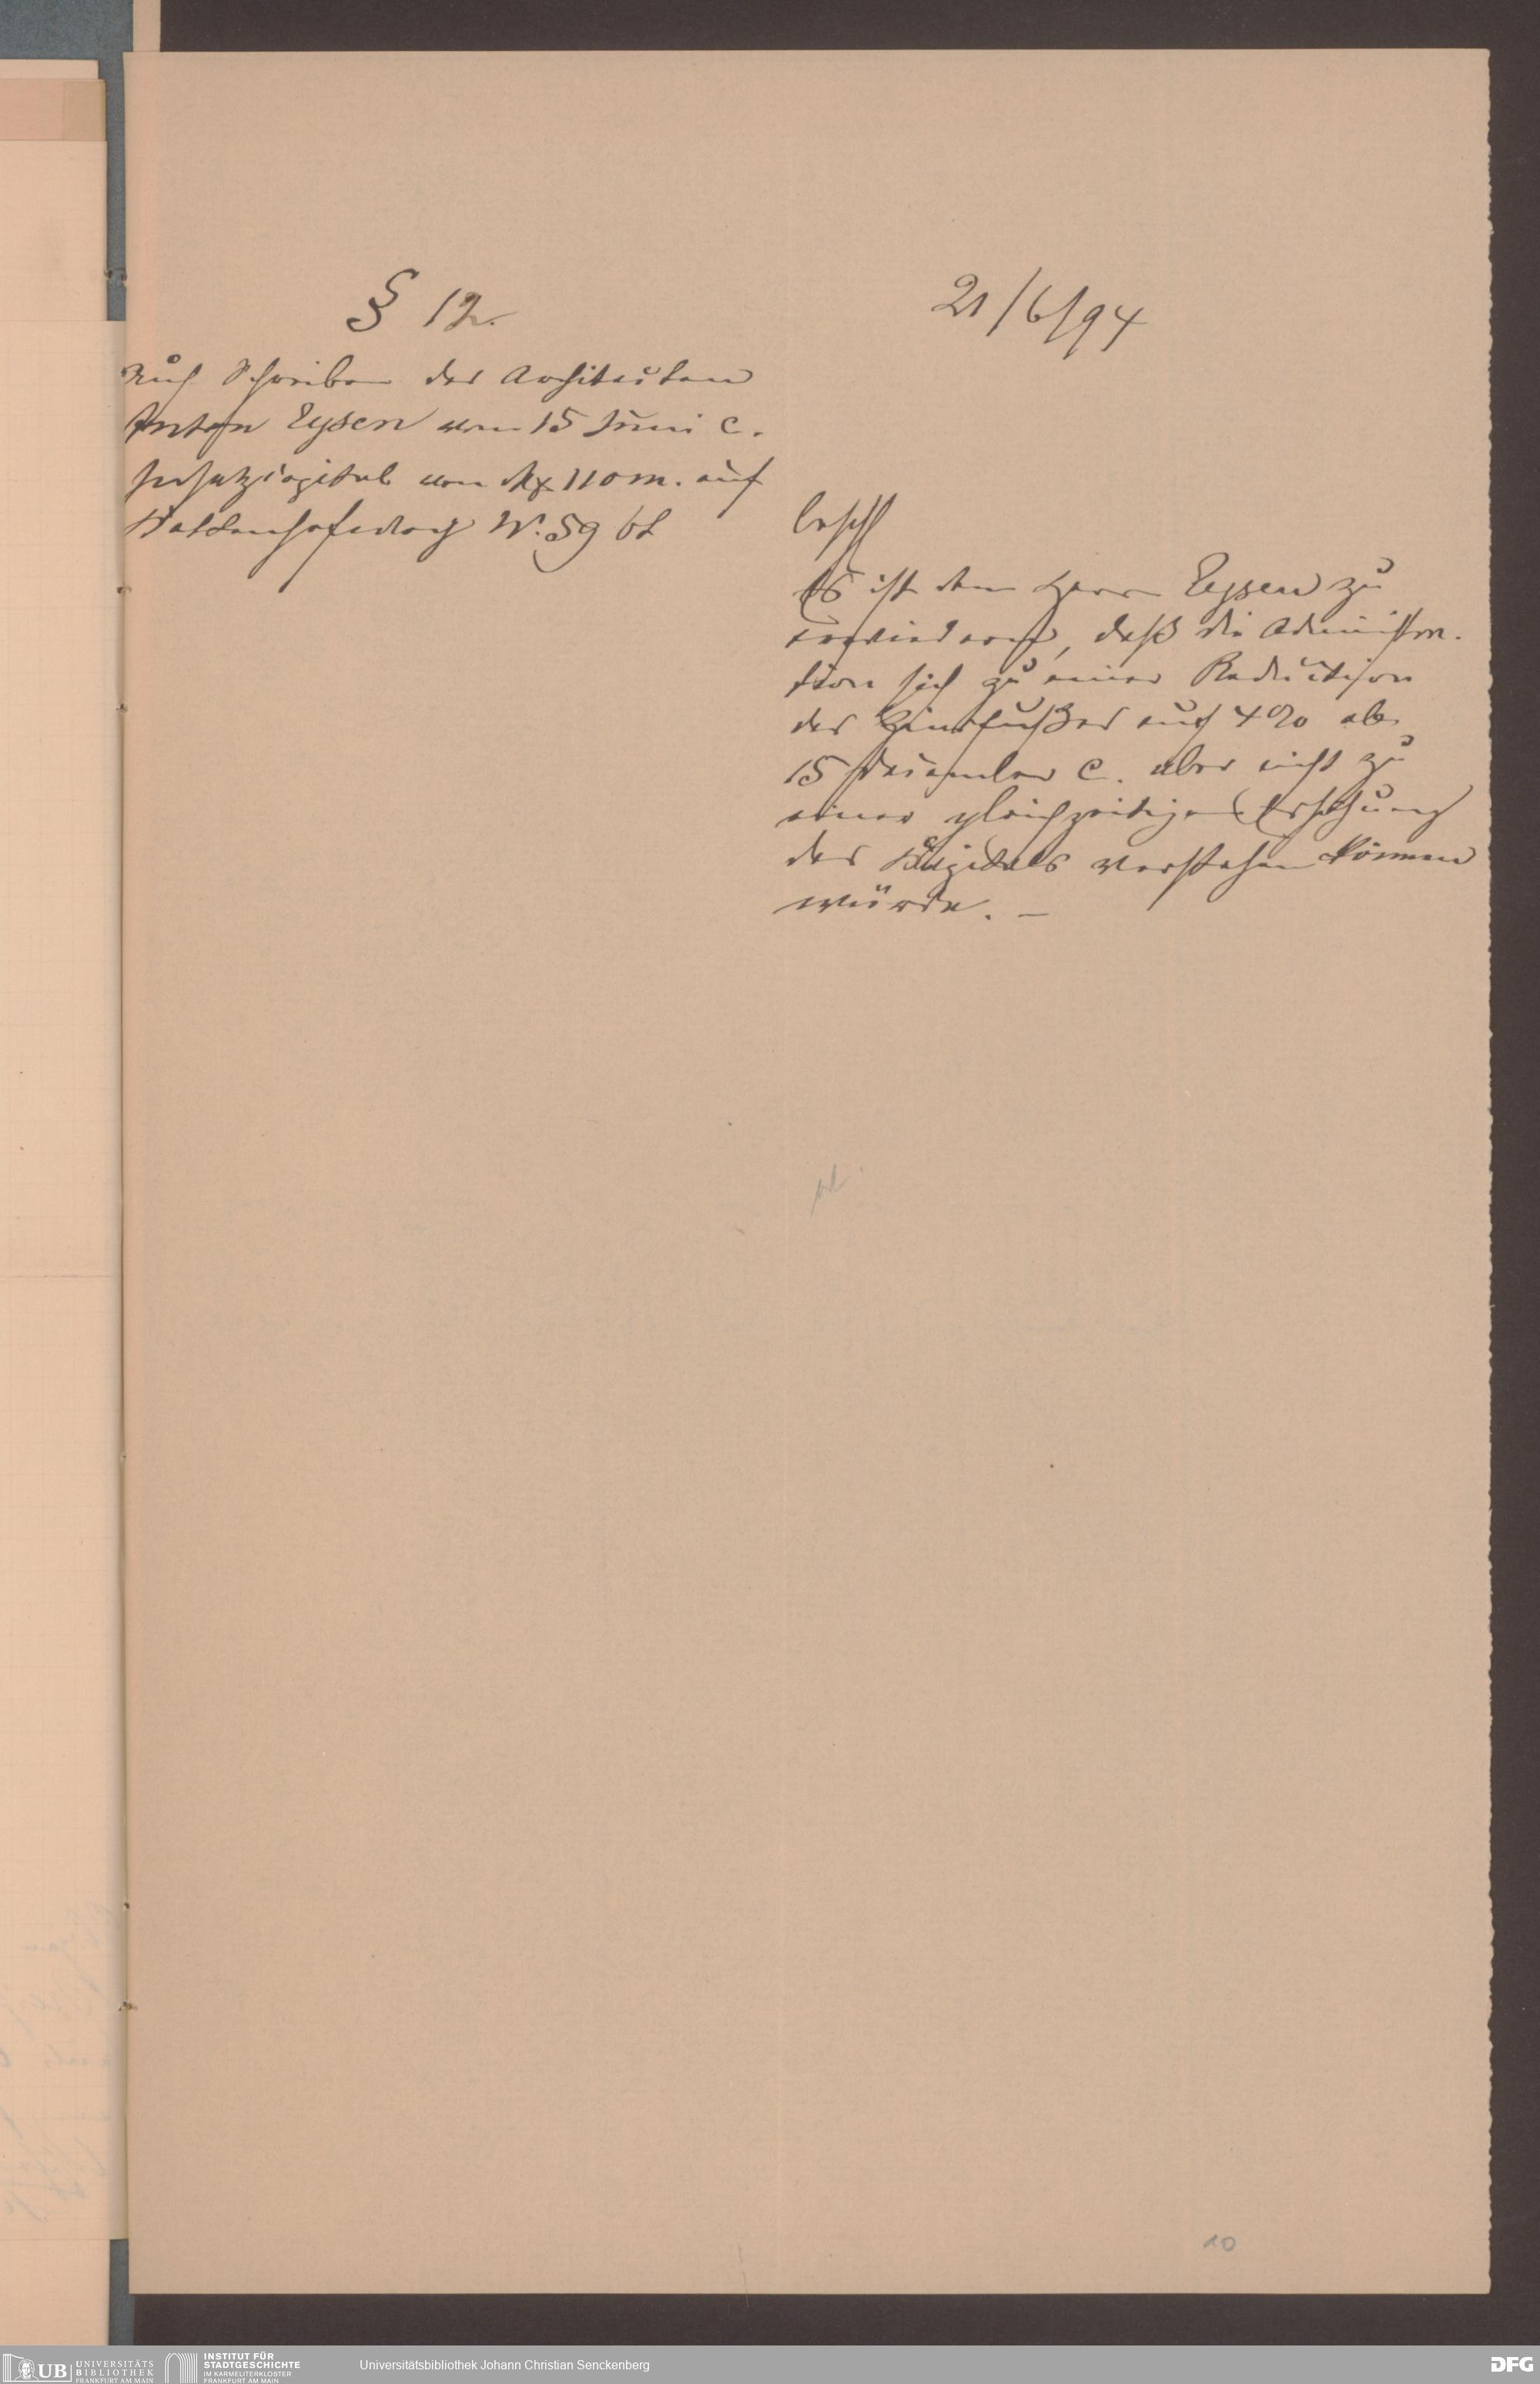 § 12.
Auf Schreiben des Architecten
Anton Eysen vom 15 Juni c.
Insatzcapital von Mk 110 m. auf
W. 59 bt
21/6/94
beschl
Es ist dem Herrn Eysen zu
erwiedern, daß die Administra-
tion sich zu einer Reduction
des Zinsfußes auf 4% ab
15 Dezember c. aber nicht zu
einer gleichzeitigen Erhöhung
des Kapitals verstehen können
würde. –
10
UB UNIVERSITÄTS
BIBLIOTHEK
FRANKFURT AM MAIN
INSTITUT FÜR
STADTGESCHICHTE
IM KARMELITERKLOSTER
FRANKFURT AM MAIN
Universitätsbibliothek Johann Christian Senckenberg
DFG